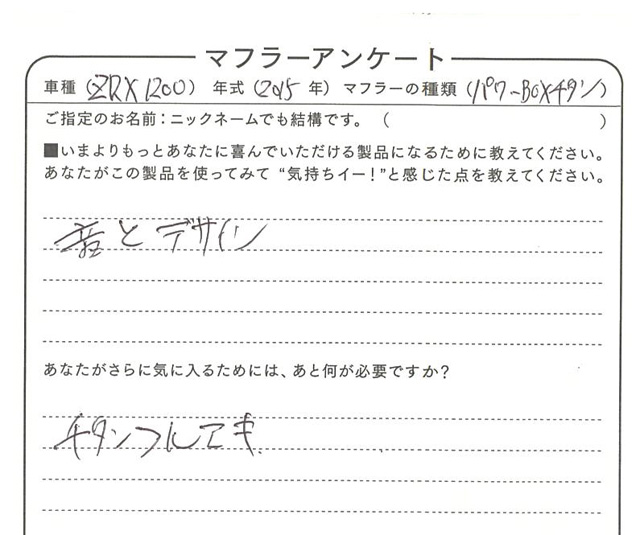 マフラーアンケート
車種（ZRX1200） 年式（2015年） マフラーの種類（パワーBOXチタン）
ご指定のお名前：ニックネームでも結構です。（ ）
■いまよりもっとあなたに喜んでいただける製品になるために教えてください。
あなたがこの製品を使ってみて“気持ちイー！”と感じた点を教えてください。
音とデザイン
あなたがさらに気に入るためには、あと何が必要ですか？
チタンフルエキ